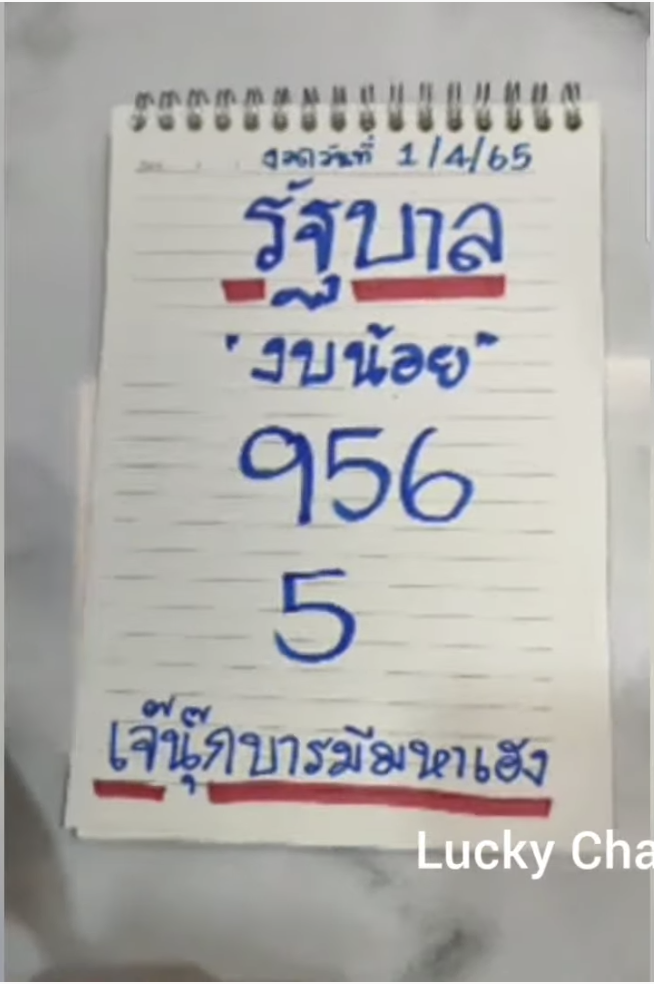 งวดวันที่ 1/4/65
รัฐบาล
"งบน้อย"
956
5
เจ๊นุ๊กบารมีมหาเฮง
Lucky Cha